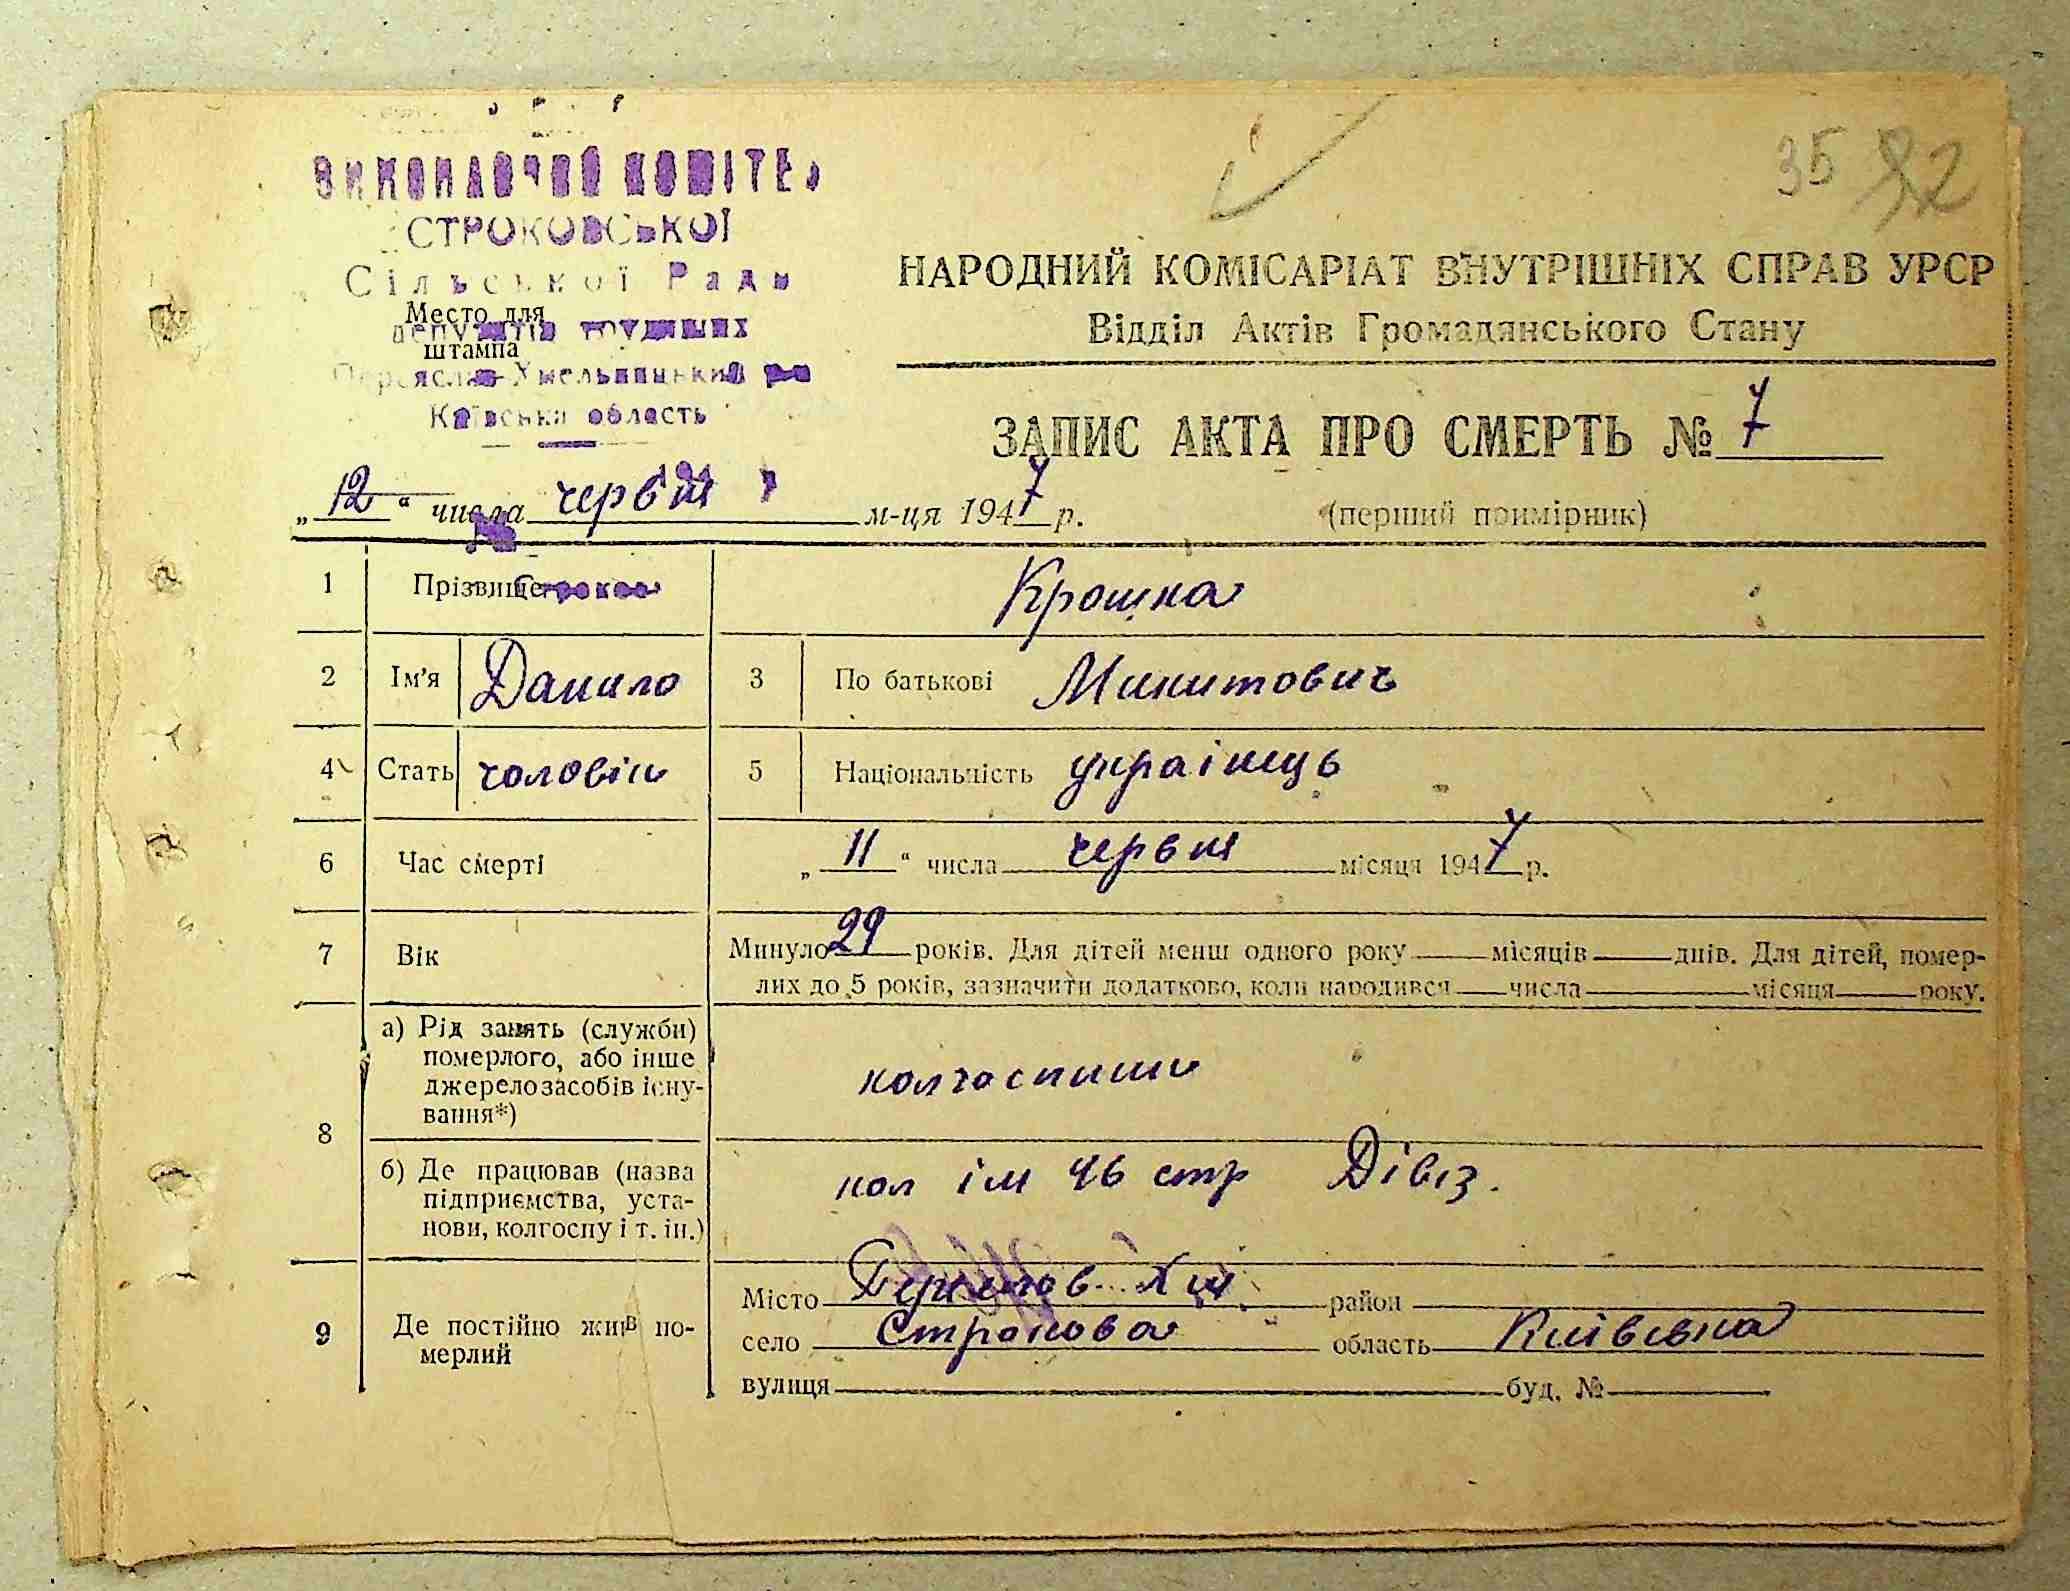 35 82
ВИКОНАВЧИЙ КОМІТЕТ
СТРОКОВСЬКОЇ
Сільської Ради
Место для
депутатів трудящих
штампа
Переяслав-Хмельницький р-н
Київська область
НАРОДНИЙ КОМІСАРІАТ ВНУТРІШНІХ СПРАВ УРСР
Відділ Актів Громадянського Стану
ЗАПИС АКТА ПРО СМЕРТЬ № 7
„12“ числа червня м-ця 1947 р. (перший примірник)
1 Прізвище Строкова Крошка
2 Ім'я Данило 3 По батькові Микитович
4 Стать чоловік 5 Національність українець
6 Час смерті „11“ числа червня місяця 1947 р.
7 Вік Минуло 29 років. Для дітей менш одного року місяців днів. Для дітей, помер-
лих до 5 років, зазначити додатково, коли народився числа місяця року.
8 а) Рід занять (служби)
померлого, або інше
джерело засобів існу-
вання*)
колгоспник
б) Де працював (назва
підприємства, уста-
нови, колгоспу і т. ін.)
кол ім 46 стр Дівіз.
9 Де постійно жив по-
мерлий
Місто Переяслов-Хм. район
село Строкова область Київська
вулиця буд. №